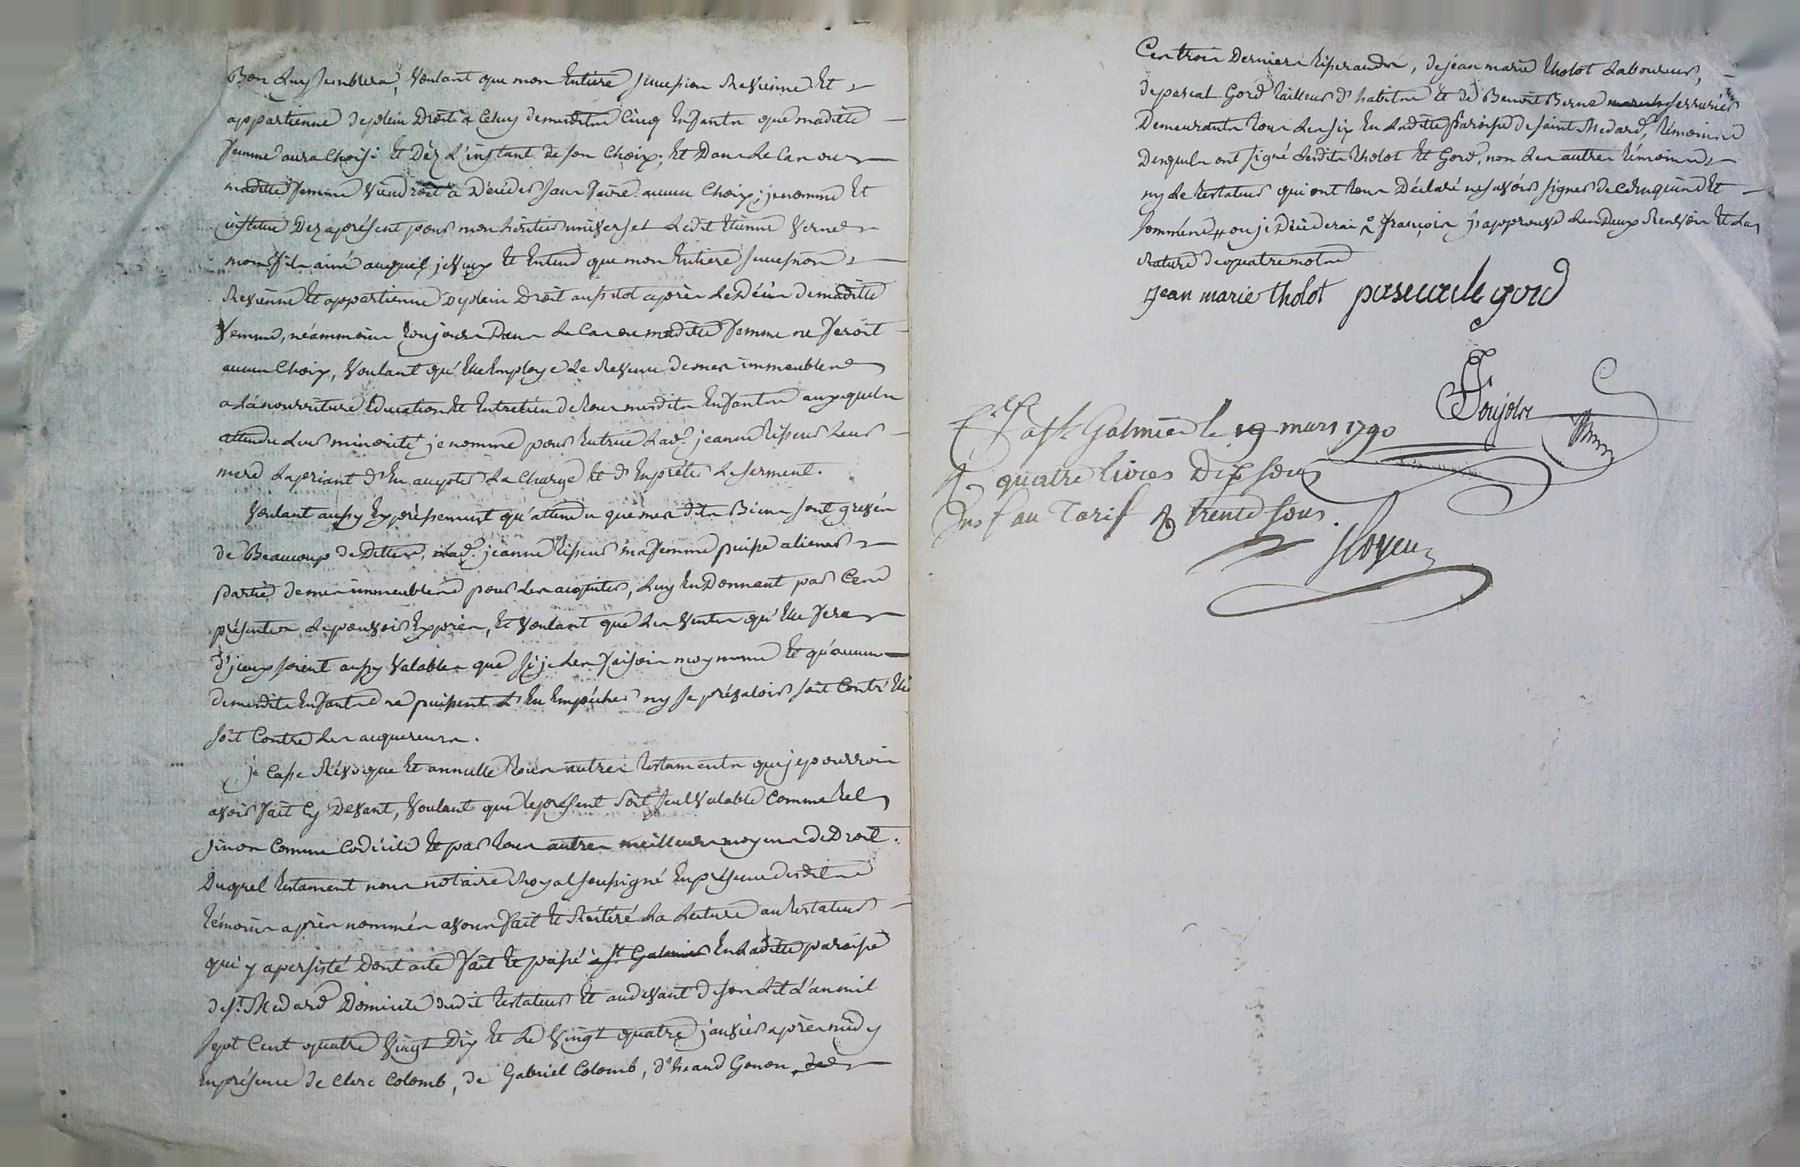 Bon Luy semblera, voulant que mon entiere succession revienne et
appartienne de plein droit à celuy de mesdits cinq enfants que maditte
femme aura choisi et dez l'instant de son choix; et dans le cas ou
maditte femme viendroit à déceder sans faire aucun choix; je nomme et
institue dez aprésent pour mon héritier universel ledit Etienne Verne
mon fils ainé auquel je veux et entend que mon entiere succession
revienne et appartienne de plein droit aussitot après le décès de maditte
femme, néammoins toujours dans le cas ou maditte femme ne feroit
aucun choix, voulant qu'elle employe le revenu de mes immeubles
a la nourriture éducation et entretien de tous mesdits enfants auxquels
attendu leur minorité je nomme pour tutrice lad.e jeanne Tisseur leur
mere la priant d'en accepter la charge et d'en prêter le serment.
voulant aussy expressement qu'attendu que mesdits Biens sont grevés
de Beaucoup de dettes, lad.e jeanne Tisseur ma femme puisse aliener
partie de mes immeubles pour les acquiter, luy en donnant par ces
présentes le pouvoir exprès, et voulant que les ventes qu'elle fera
d'jceux soient aussy valables que sy je les faisois moy meme et qu'aucuns
de mesdits enfants ne puissent l'en empécher ny se prévaloir soit contr'elle
soit contre les acquereurs.
je casse révoque et annulle tous autres testaments que je pourrois
avoir fait cy devant, voulant que le present soit seul valable comme tel
sinon comme codicile et par tous autres meilleurs moyens de droit.
Duquel testament nous notaire royal soussigné en présence desdits
témoins après nommés avons fait et réitéré la lecture au testateur
qui y a persisté dont acte fait et passé à St Galmier en laditte paroisse
de St. Medard domicile dudit testateur et au devant de son lit l'an mil
sept cent quatre vingt dix et le vingt quatre janvier après midy
en présence de Clerc Colomb, de Gabriel Colomb, d' Gonon
Ces trois derniers, de jean marie tholot laboureur,
de pascal Gord tailleur d'habits et de Benoit Berne serrurier
Demeurants tous les six en laditte Paroisse de saint Medard, témoins
desquels ont signé lesdits tholot et Gord, non les autres témoins
ny le testateur qui ont tous déclaré ne savoir signer de ce enquis et
sommés j'approuve les deux renvois et la
rature de quatre mots
jean marie tholot pascalle gord
C.lé a St. Galmier le 19 mars 1790
R. quatre livres dix sous
Ins.f au Tarif R trente sous.